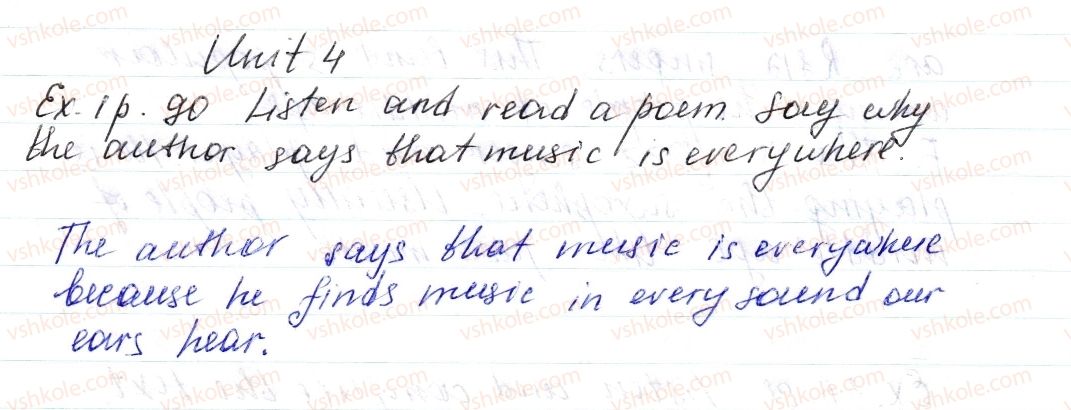 Unit 4
Ex. 1 p. 90 Listen and read a poem. Say why
the author says that music is everywhere.
The author says that music is everywhere
because he finds music in every sound our
ears hear.